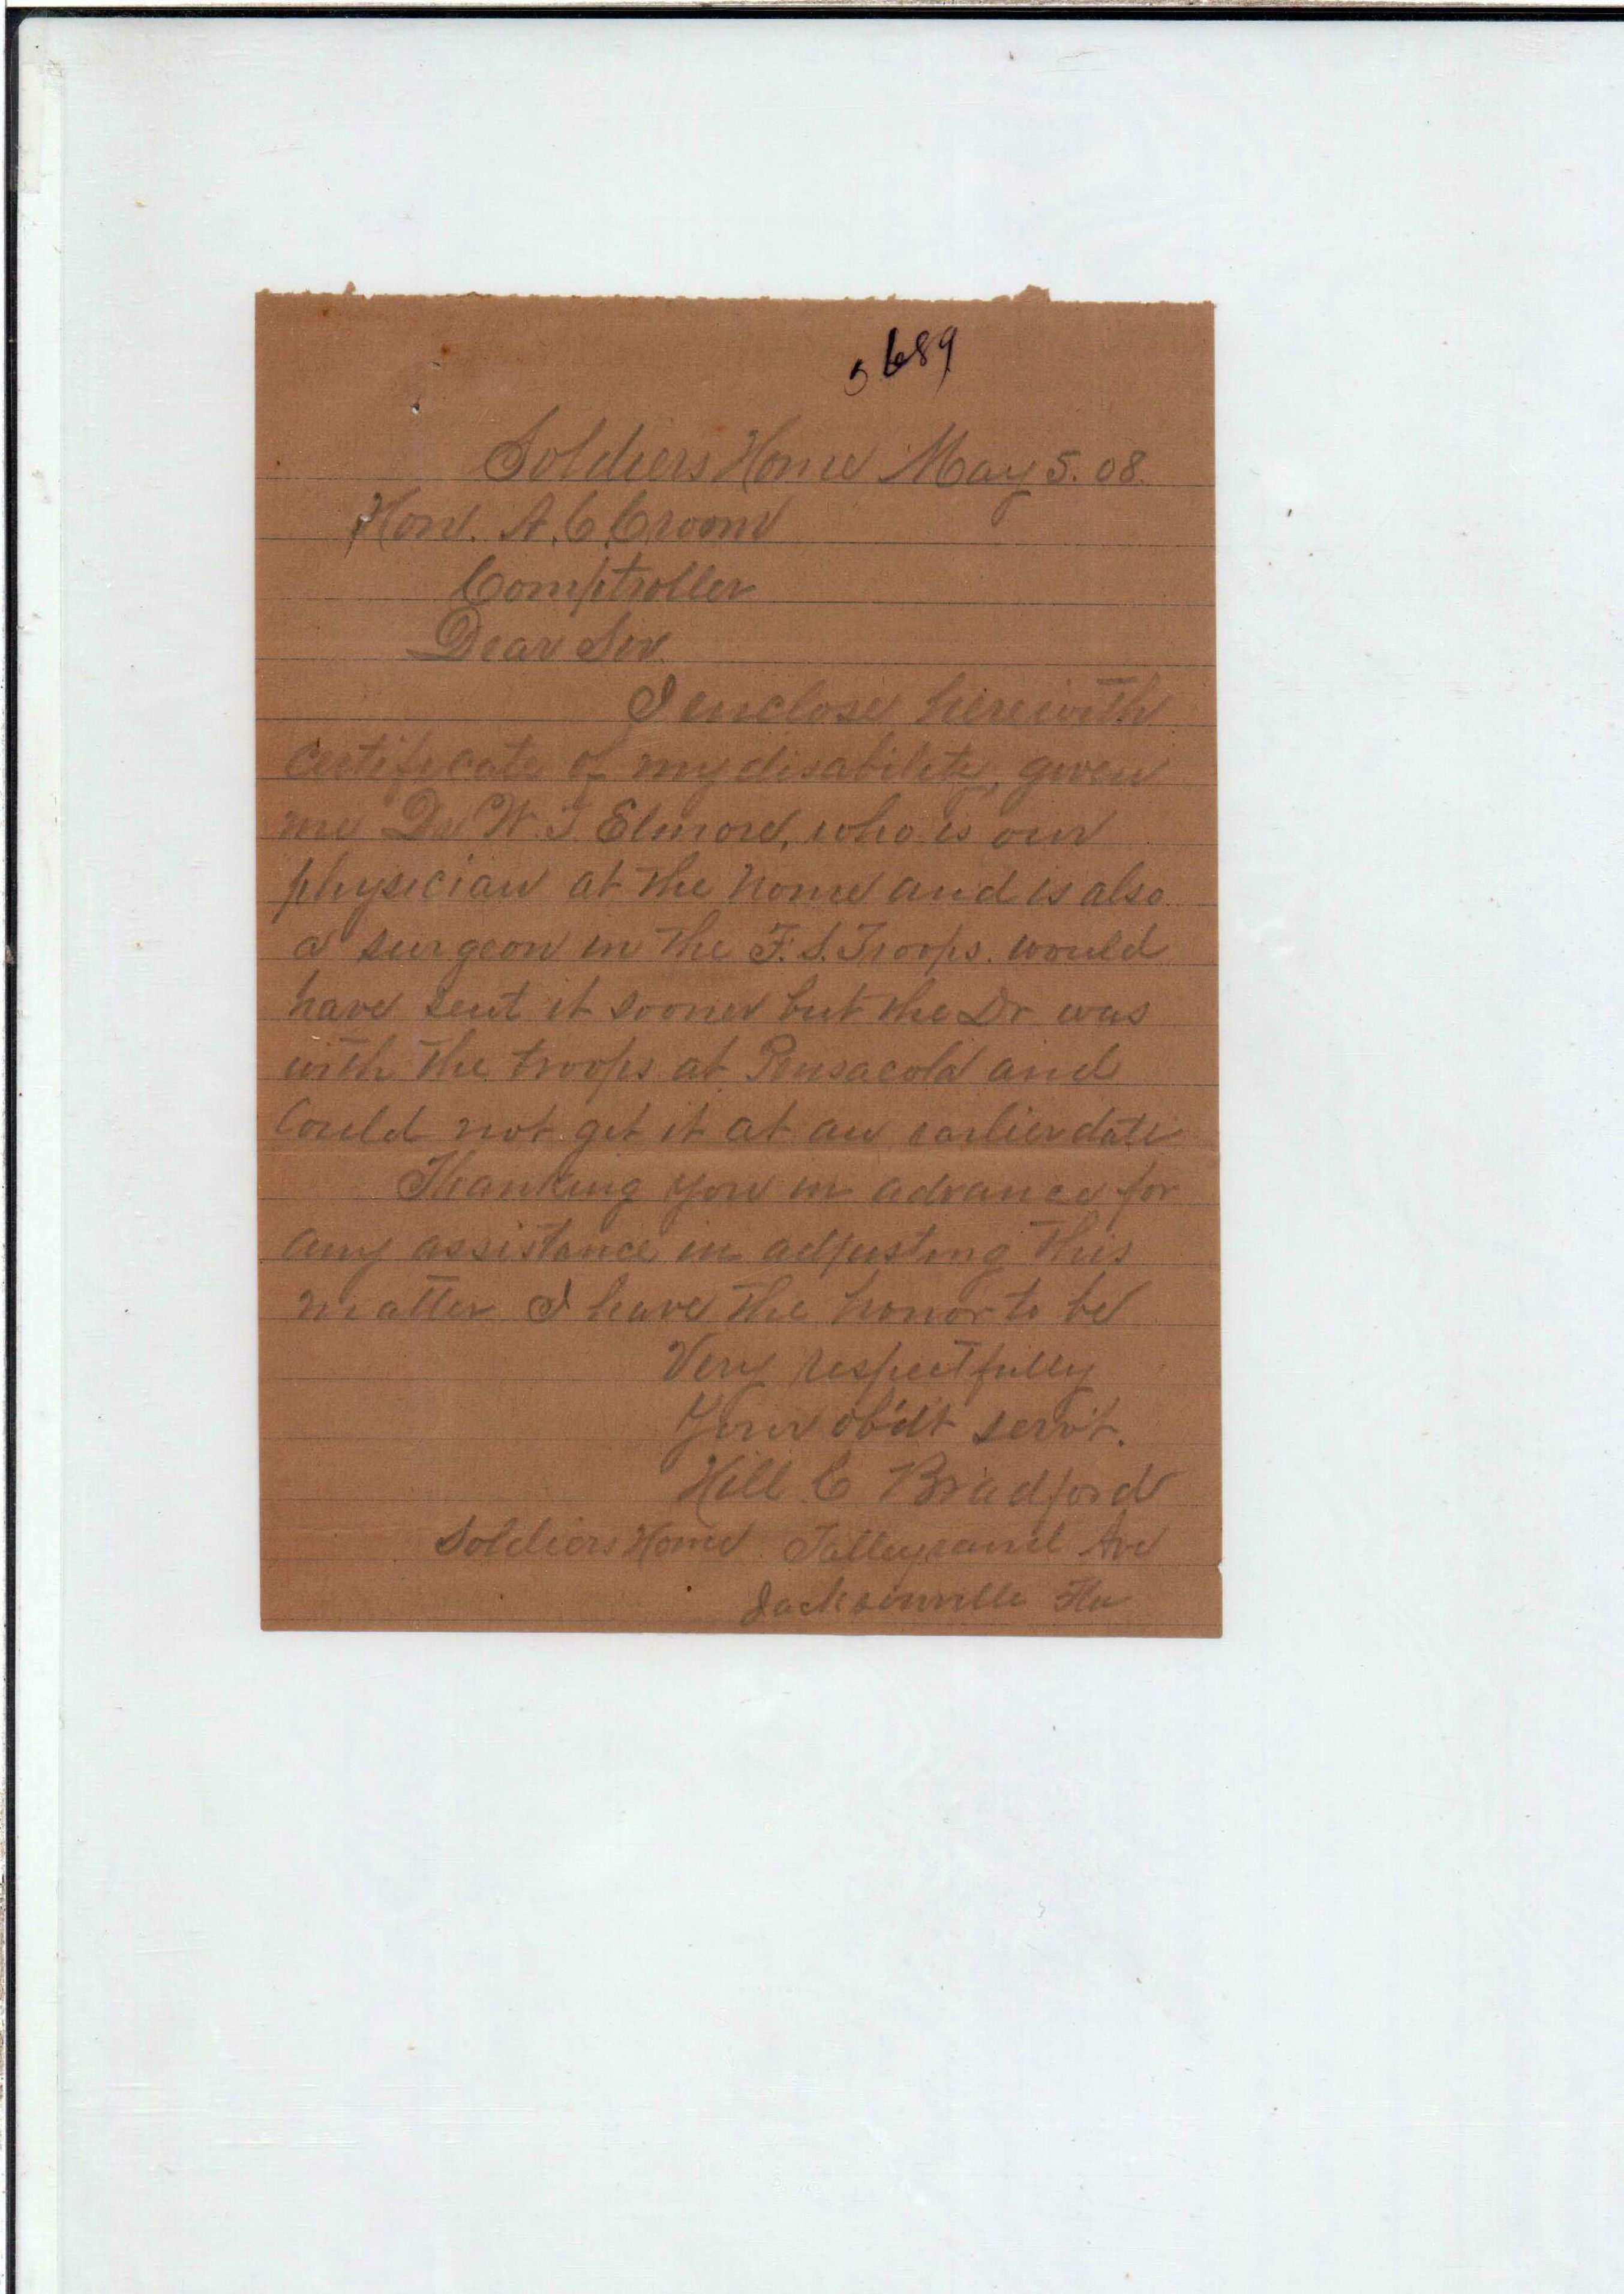 5689
Soldiers Home May 5. 08.
Hon. A. C. Croom
Comptroller
Dear Sir
I enclose herewith
certificate of my disability, given
me Dr W. J. Elmore, who is our
physician at the home and is also
a surgeon in the F. S. Troops. would
have sent it sooner but the Dr was
with the troops at Pensacola and
Could not get it at an earlier date
Thanking you in advance for
any assistance in adjusting this
matter I have the honor to be
Very respectfully
Your ob'dt serv't.
Hill C Bradford
Soldiers Home Talleyrand Ave
Jacksonville Fla